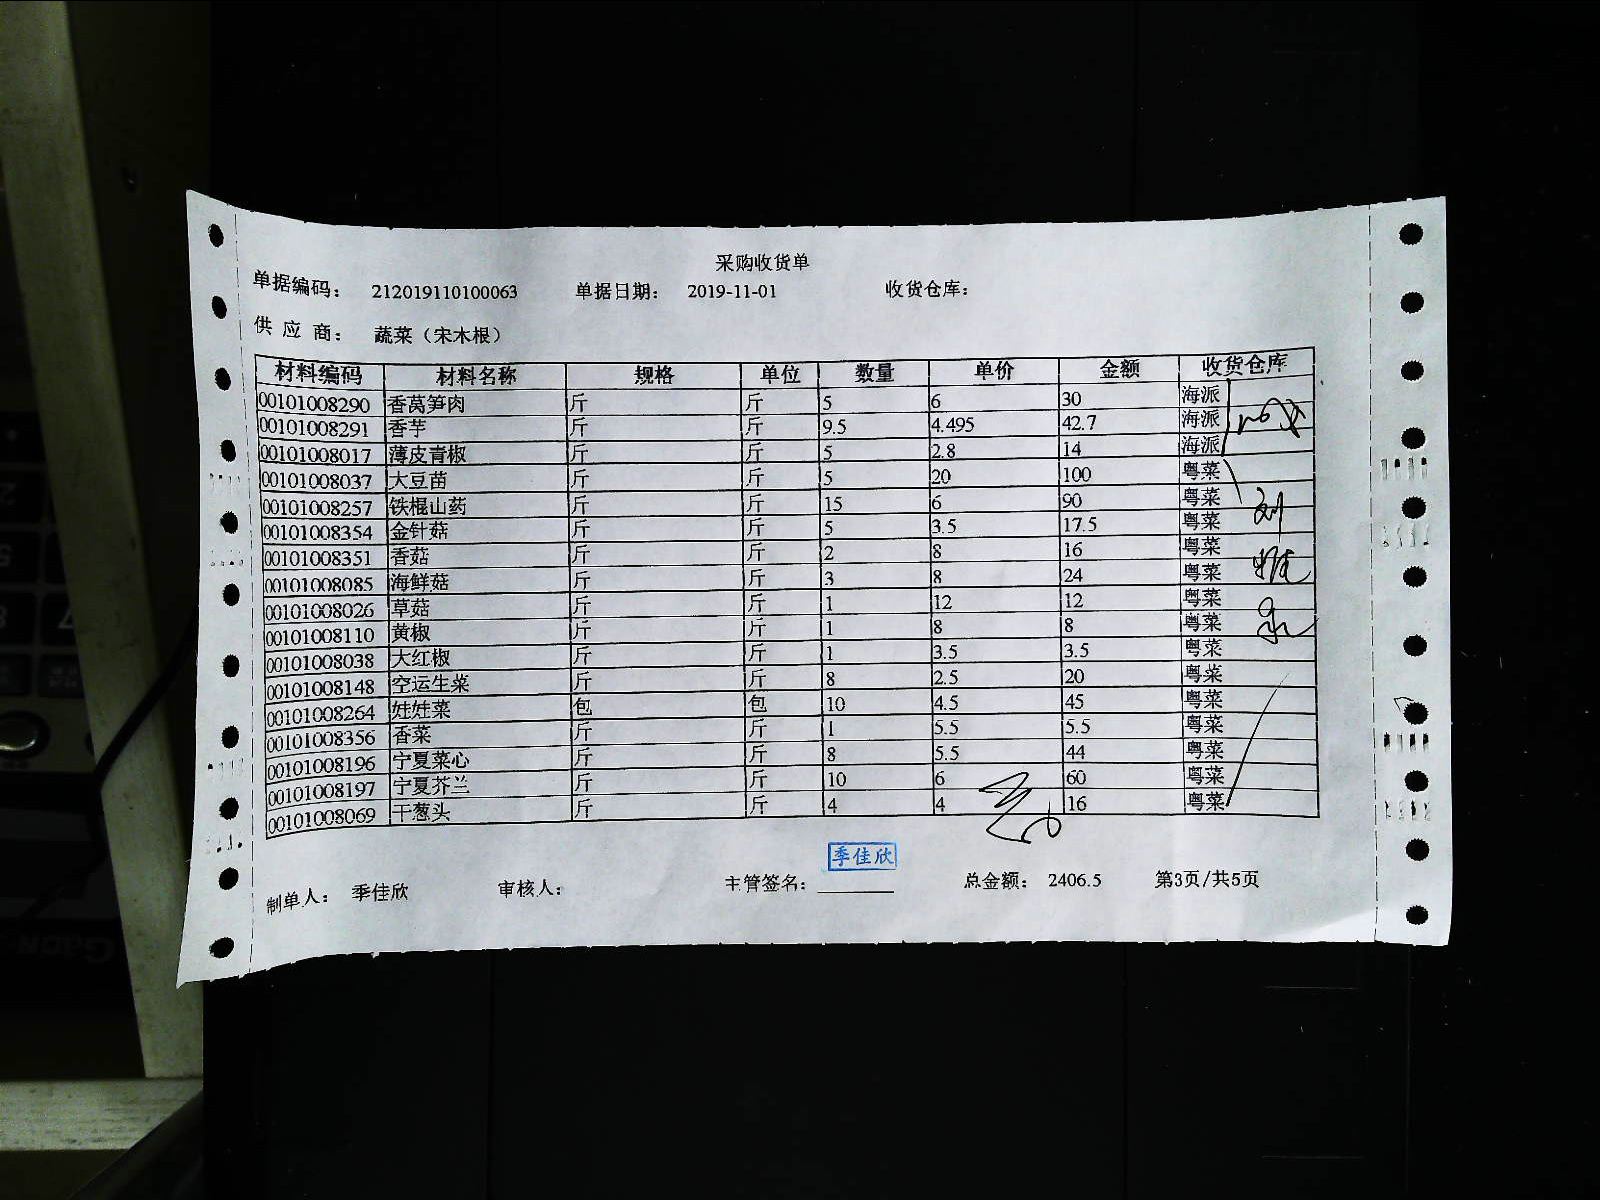 采购收货单
单据编码： 212019110100063 单据日期： 2019-11-01 收货仓库：
供 应 商： 蔬菜（宋木根）
材料编码 材料名称 规格 单位 数量 单价 金额 收货仓库
00101008290 香莴笋肉 斤 斤 5 6 30 海派
00101008291 香芋 斤 斤 9.5 4.495 42.7 海派
00101008017 薄皮青椒 斤 斤 5 2.8 14 海派
00101008037 大豆苗 斤 斤 5 20 100 粤菜
00101008257 铁棍山药 斤 斤 15 6 90 粤菜
00101008354 金针菇 斤 斤 5 3.5 17.5 粤菜
00101008351 香菇 斤 斤 2 8 16 粤菜
00101008085 海鲜菇 斤 斤 3 8 24 粤菜
00101008026 草菇 斤 斤 1 12 12 粤菜
00101008110 黄椒 斤 斤 1 8 8 粤菜
00101008038 大红椒 斤 斤 1 3.5 3.5 粤菜
00101008148 空运生菜 斤 斤 8 2.5 20 粤菜
00101008264 娃娃菜 包 包 10 4.5 45 粤菜
00101008356 香菜 斤 斤 1 5.5 5.5 粤菜
00101008196 宁夏菜心 斤 斤 8 5.5 44 粤菜
00101008197 宁夏芥兰 斤 斤 10 6 60 粤菜
00101008069 干葱头 斤 斤 4 4 16 粤菜
季佳欣
制单人： 季佳欣 审核人： 主管签名： 总金额： 2406.5 第3页/共5页